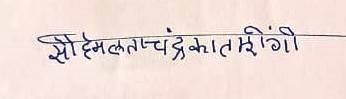 सौ हेमलता चंद्रकात मरींगी